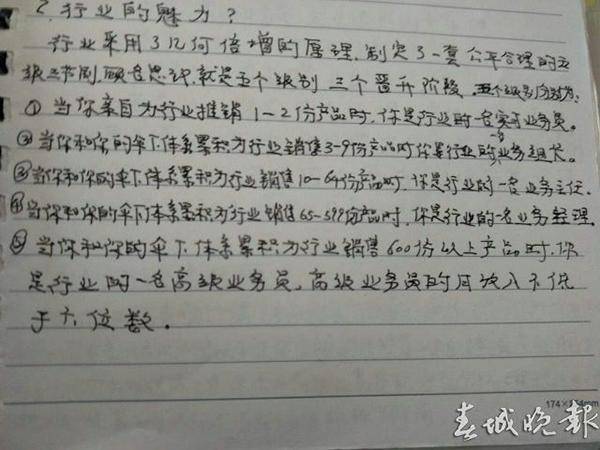 2.行业的魅力?
行业采用了几何倍增的原理,制定了一套公平合理的五
级三阶制,顾名思议,就是五个级别 三个晋升阶段,五个级别分别为:
① 当你亲自为行业推销1-2份产品时,你是行业的一名实习业务员。
②当你和你的伞下体系累积为行业销售3-9份产品时你是行业的一名业务组长。
③当你和你的伞下体系累积为行业销售10-64份产品时,你是行业的一名业务主任.
④当你和你的伞下体系累积为行业销售65-599份产品时,你是行业的一名业务经理.
⑤ 当你和你的伞下体系累积为行业销售600份以上产品时,你
是行业的一名高级业务员,高级业务员的月收入不低
于六位数.
174×
mm
春城晚报